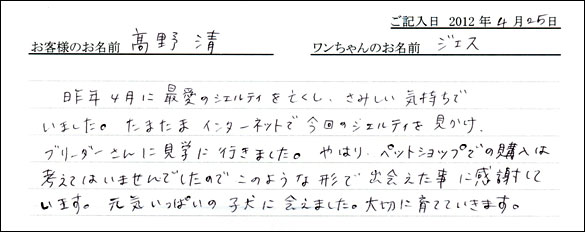 ご記入日 2012年4月25日
お客様のお名前 高野 清 ワンちゃんのお名前 ジェス
昨年4月に最愛のシェルティを亡くし、さみしい気持ちで
いました。たまたまインターネットで今回のシェルティを見かけ、
ブリーダーさんに見学に行きました。やはり、ペットショップでの購入は
考えてはいませんでしたのでこのような形で出会えた事に感謝して
います。元気いっぱいの子犬に会えました。大切に育てていきます。